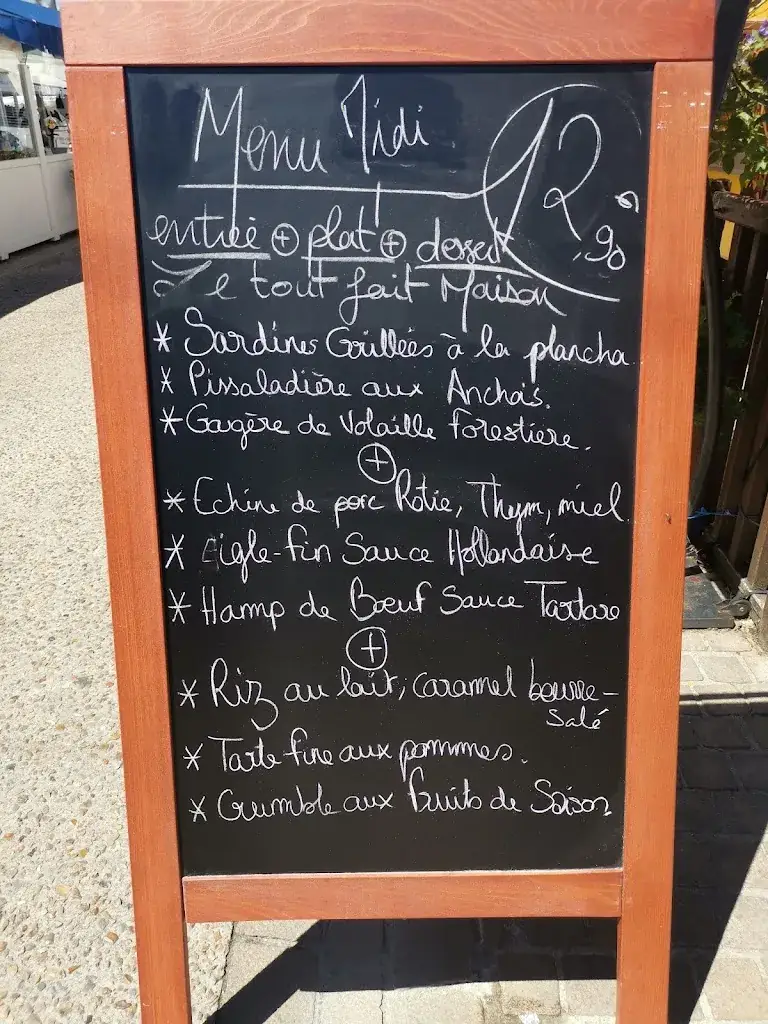 Menu Midi 12,90
entrée + plat + dessert
le tout fait Maison
* Sardines Grillées à la plancha
* Pissaladière aux Anchois.
* Gaugère de Volaille forestiere.
+
* Echine de porc Rotie, Thym, miel
* Eigle-fin Sauce Hollandaise
* Hamp de Bœuf Sauce Tartare
+
* Riz au lait, caramel beurre-
salé
* Tarte fine aux pommes.
* Crumble aux fruits de Saison